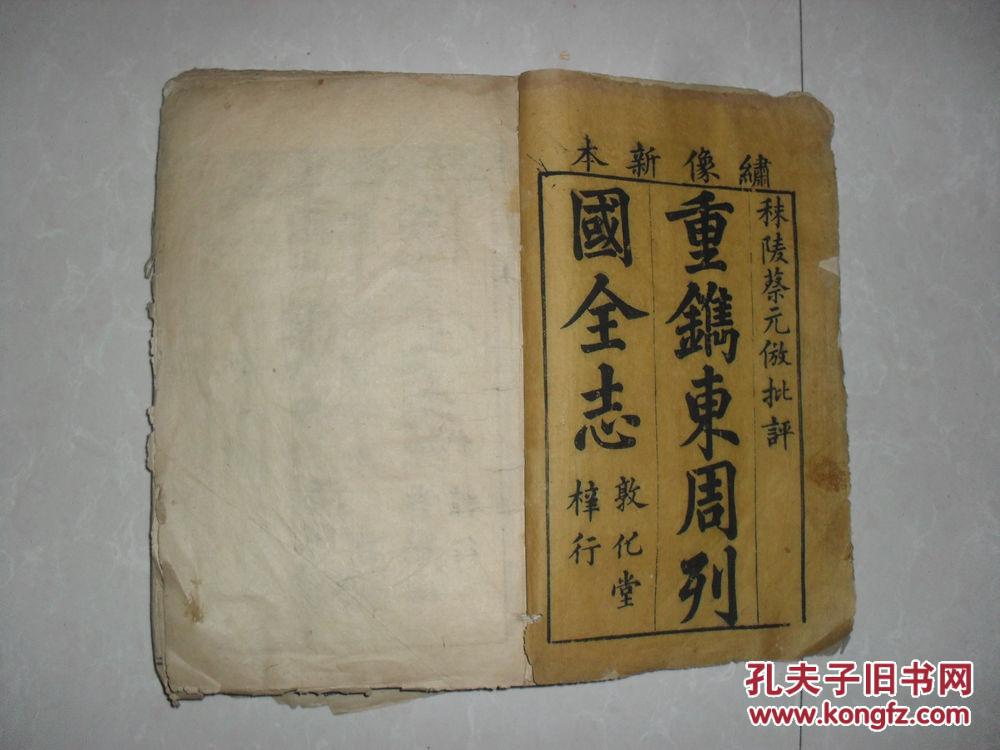 繡像新本
秣陵蔡元倣批評
重鐫東周列
國全志
敦化堂
梓行
孔夫子旧书网
www.kongfz.com